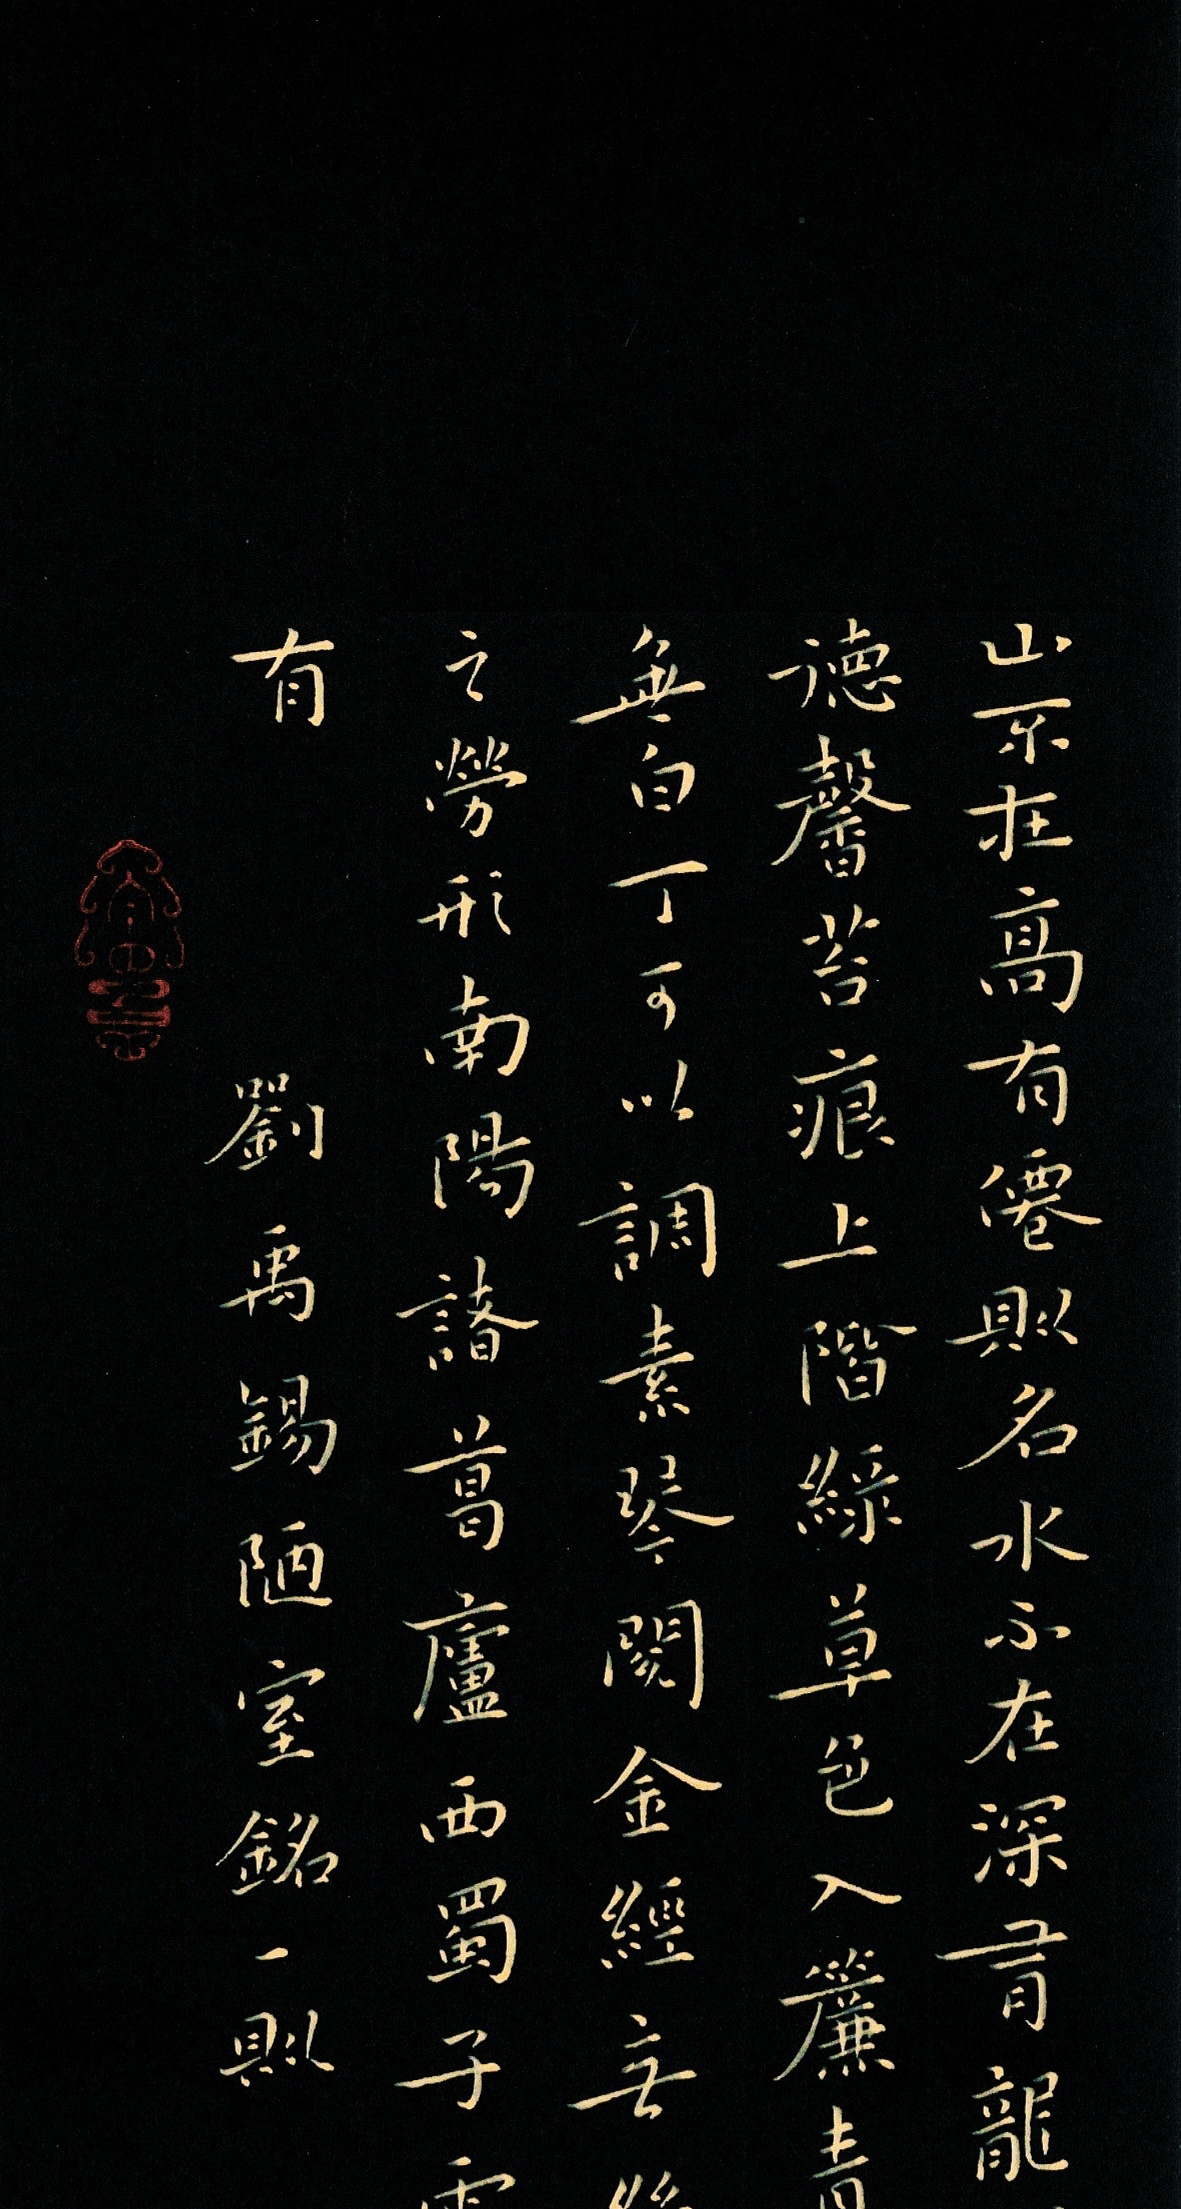 山不在高有僊則名水不在深有龍
德馨苔痕上階綠草色入簾青
無白丁可以調素琴閱金經無絲
之勞形南陽諸葛廬西蜀子雲
有
劉禹錫陋室銘一則